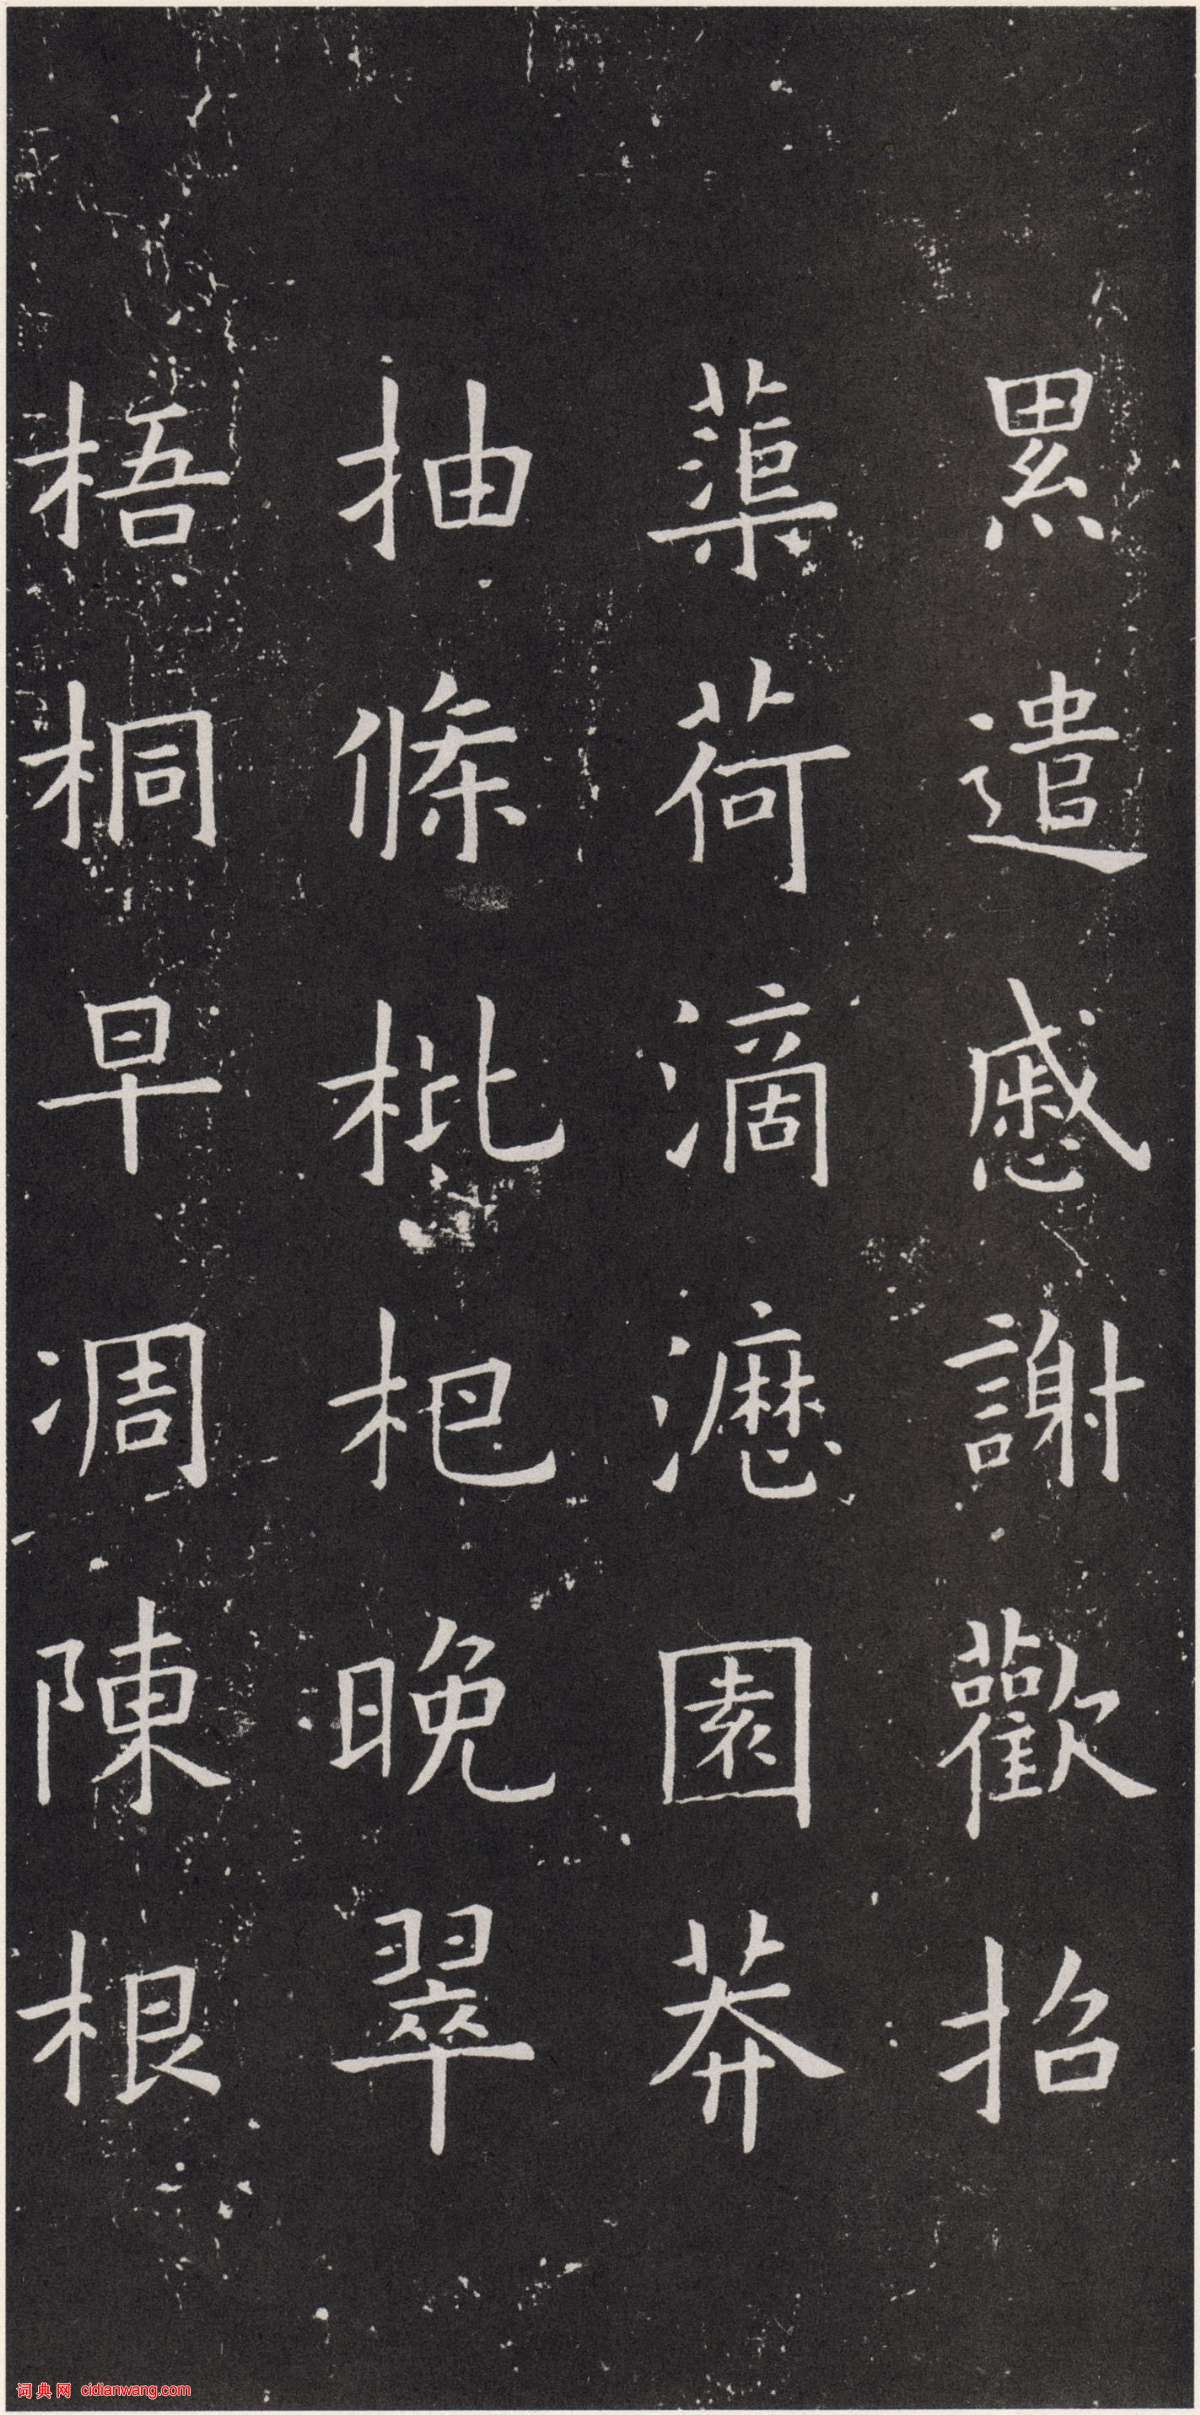 累遣慼謝歡招
蕖荷滴瀝園莽
抽條枇杷晚翠
梧桐早凋陳根
词典网 cidianwang.com